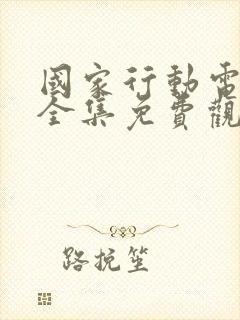 國家行動電
全集免費觀
路挽笙